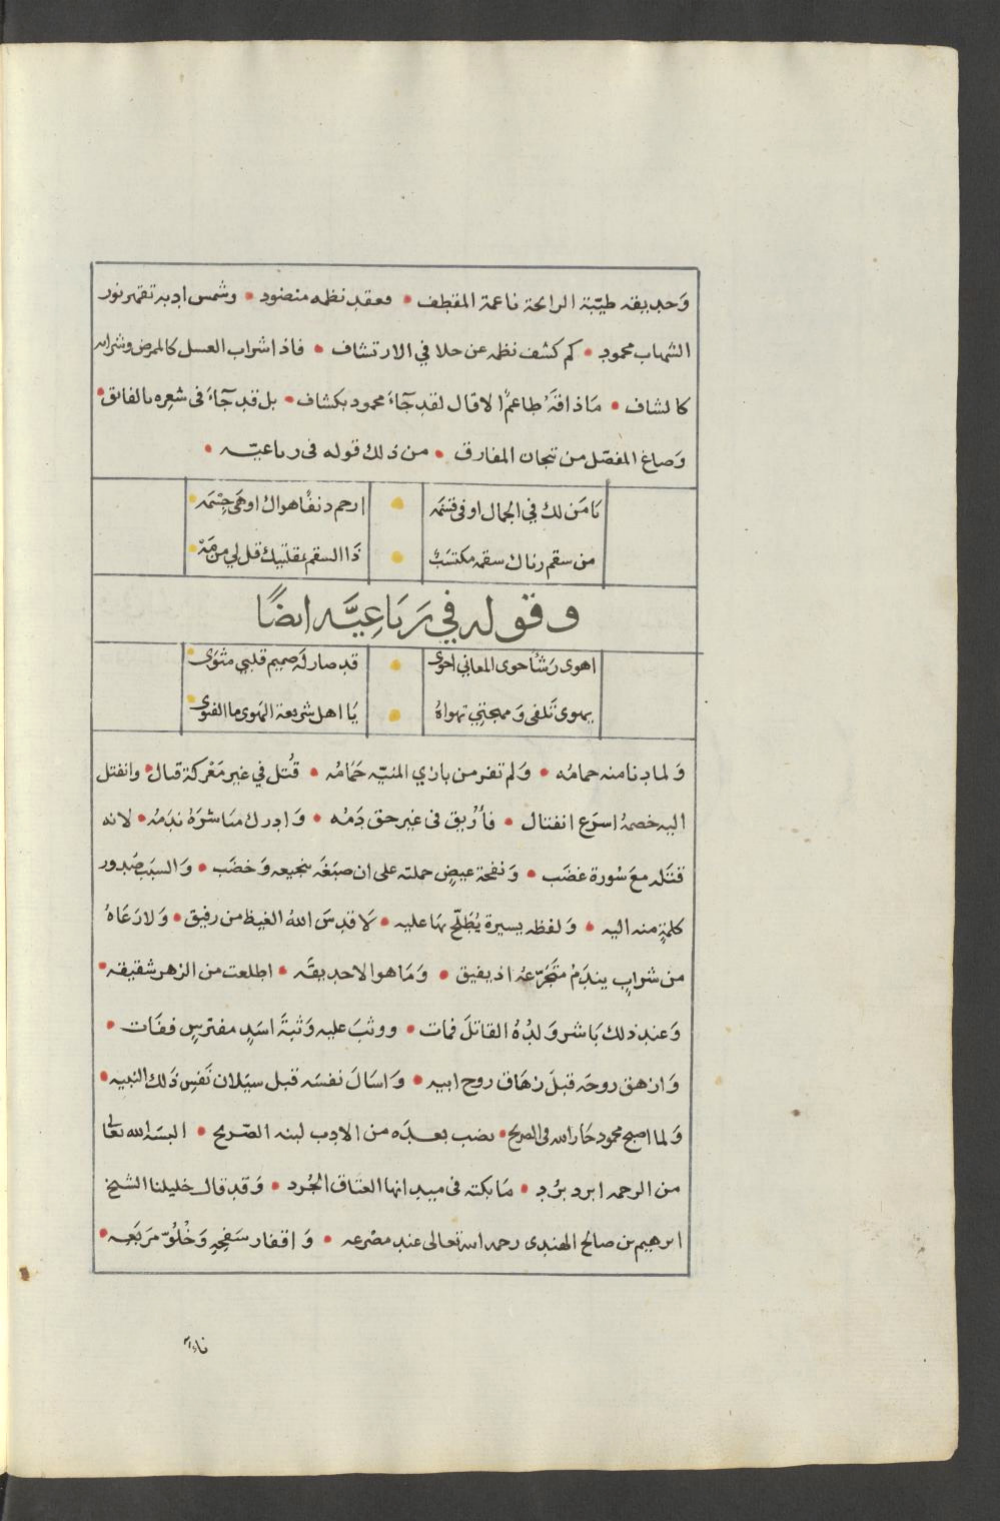 وَحديقه طيّبة الرايحة ناعمة المقطف • فعقد نظمه منضود • وشمس ادبه تقهر نور
الشهاب محمود • كم كشف نظمه عن حلا في الارتشاف • فاذا شراب العسل كالمرض وشرابه
كالشاف • مَا ذاقهُ طاعمٌ الا قال لقد جَآءَ محمود بكشاف • بل قد جَآءَ فى شعره بالفايق •
وَصاغ المفصّل من تيجان المفارق • من ذلك قوله فى رباعيّه •
يَا مَن لك في الجمال اوفى قسمَه • ارحم دنفًا هواك اوهَى جِسْمَه
من سقم رناك سقمه مكتسَبٌ • ذَا السقم بمقلتيك قل لي مِن مَهْ
وقوله في رَبَاعِيَّه ايضًا
اهوى رَشَأً حوى المعاني احوى • قد صار لَه صميم قلبي مثوَى
يهوى تَلَفى وَمهجتي تهواهُ • يَا اهل شريعة الهوى ما الفتوى
وَلما دنا منه حمامُه • وَلم تفر من بازي المنيّه حَمَامُه • قُتل في غير مَعْركة قتال • وانفتل
اليه خصمهُ اسرَع انفتال • فأُريق فى غير حق دَمُه • وَادرك مبَاشرَهُ ندَمهُ • لانه
قتَله معَ سُورة غضَب • وَنفحة غيضٍ حملته على ان صبَغَه بنجيعه وَخضَب • وَالسبَب صُدور
كلمةٍ منه اليه • وَلفظه يسيرة يُطَلّح بها عليه • لَا قدسَ اللهُ الغيظ من رفيق • وَلا رَعَاهُ
من شرابٍ يندَمُ متَجَرّعهُ اذ يفيق • وَمَا هو الا حديقَه • اطلعت من الزهر شقيقه •
وَعند ذلك بَاشر وَلدُهُ القاتلَ فمات • ووثبَ عليه وَثبَةَ اسَدٍ مفترسٍ ففَات •
وَازهق روحَه قبلَ زهَاق روح ابيه • وَاسَالَ نفسَه قبل سيَلان نَفسِ ذَلك النبيه •
وَلما اصبح محمود جَار الله فى الضريح • نصب بعدَه من الادب لبنه الصّريح • البسَه الله تعالى
من الرحمه ابرد برُد • مَا بكته فى ميدانها العتَاق الجُرد • وَقد قال خليلنا الشيخ
ابرهيم بن صالح الهندى رحمه الله تعالى عند مصْرعه • وَاقفار سَفحِه وَخُلُوّ مرَبَعِه •